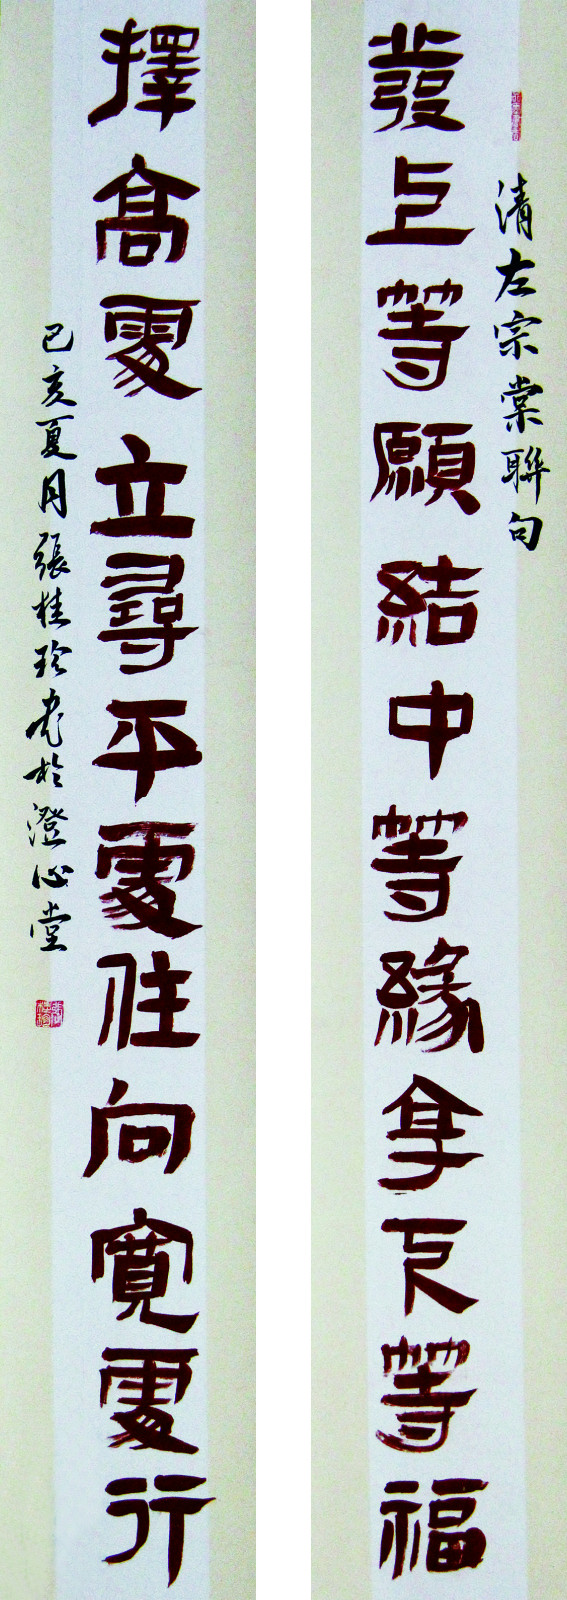 清左宗棠聯句
發上等願結中等緣享下等福
擇高處立尋平處住向寬處行
己亥夏月張桂珍書於澄心堂